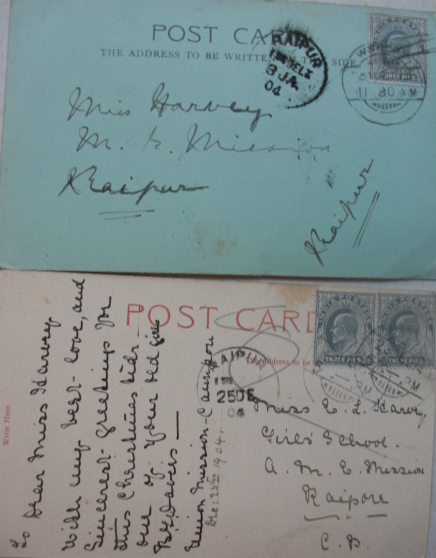 POST CA
THE ADDRESS TO BE WRITTEN
SIDE
RAIPUR
3 JA
04
11.30 AM
Miss Harvey
M. E. Mission
Raipur
Raipur
POST CARD
The Address to be
Write Here
THREE PIES
THREE PIES
25 DE
To Dear Miss Harvey
With my best love, and
Sincerest greetings for
this Christmas tide
one of your old
Mission - Cawnpore
Dec: 25th 1904.
Miss E. L. Harvey
Girls School.
A. M. E. Mission
Raipore
C. P.